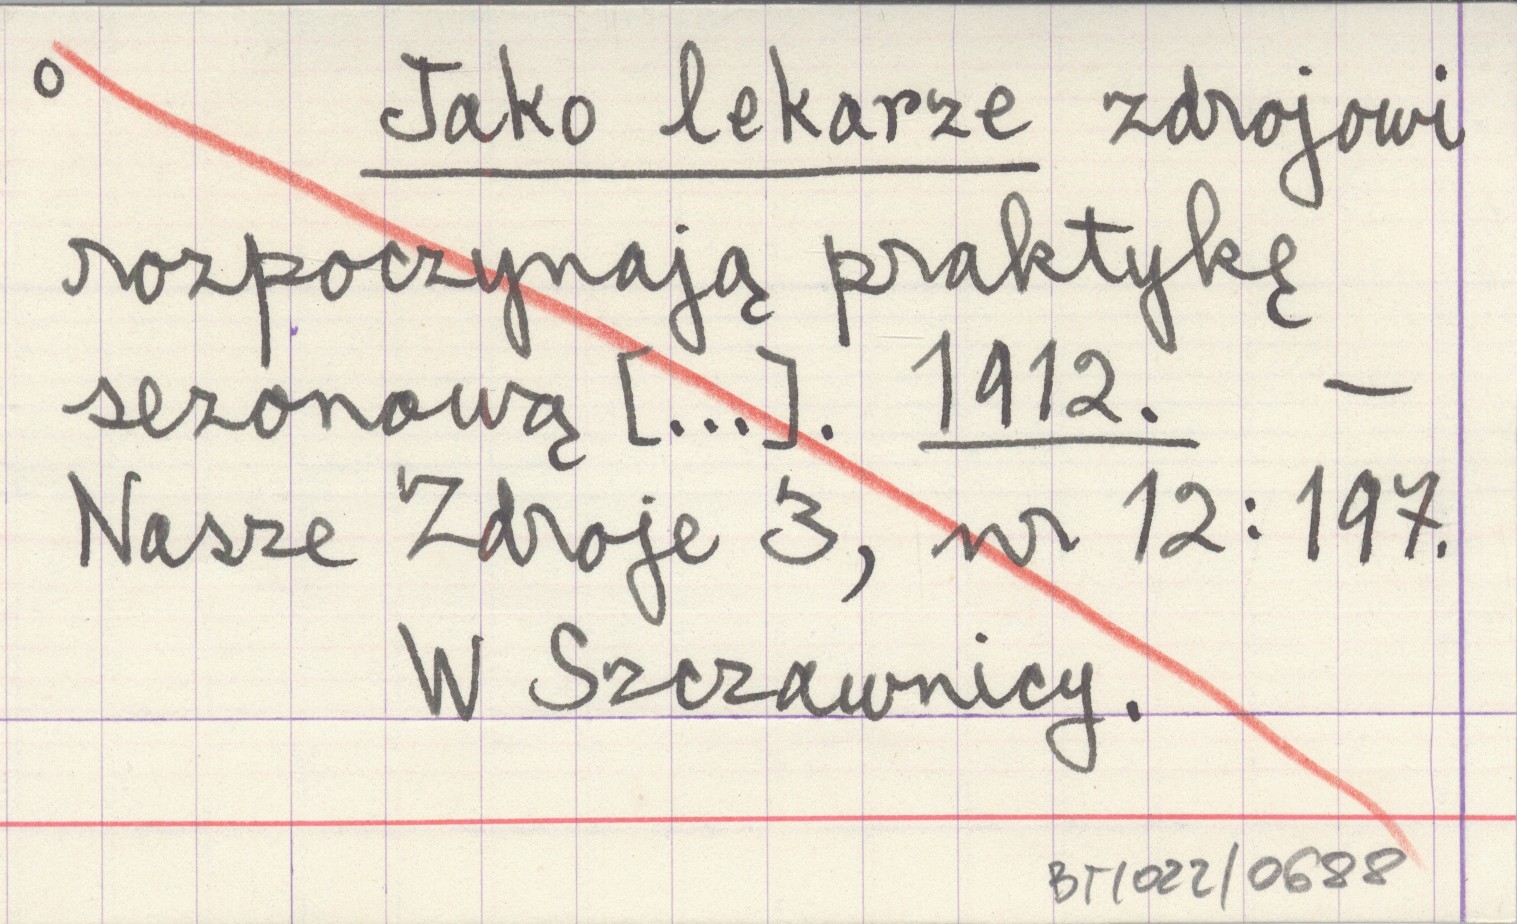 o Jako lekarze zdrojowi
rozpoczynają praktykę
sezonową [...]. 1912. —
Nasze Zdroje 3, nr 12: 197.
W Szczawnicy.
BT/022/0688